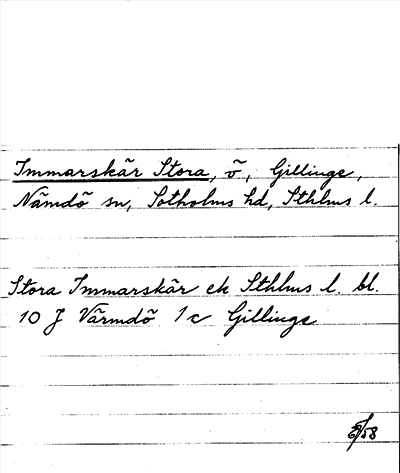 Immarskär Stora, ö, Gillinge,
Nämdö sn, Sotholms hd, Sthlms l.
Stora Immarskär ek Sthlms l. bl.
10 J Värmdö 1c Gillinge
/58